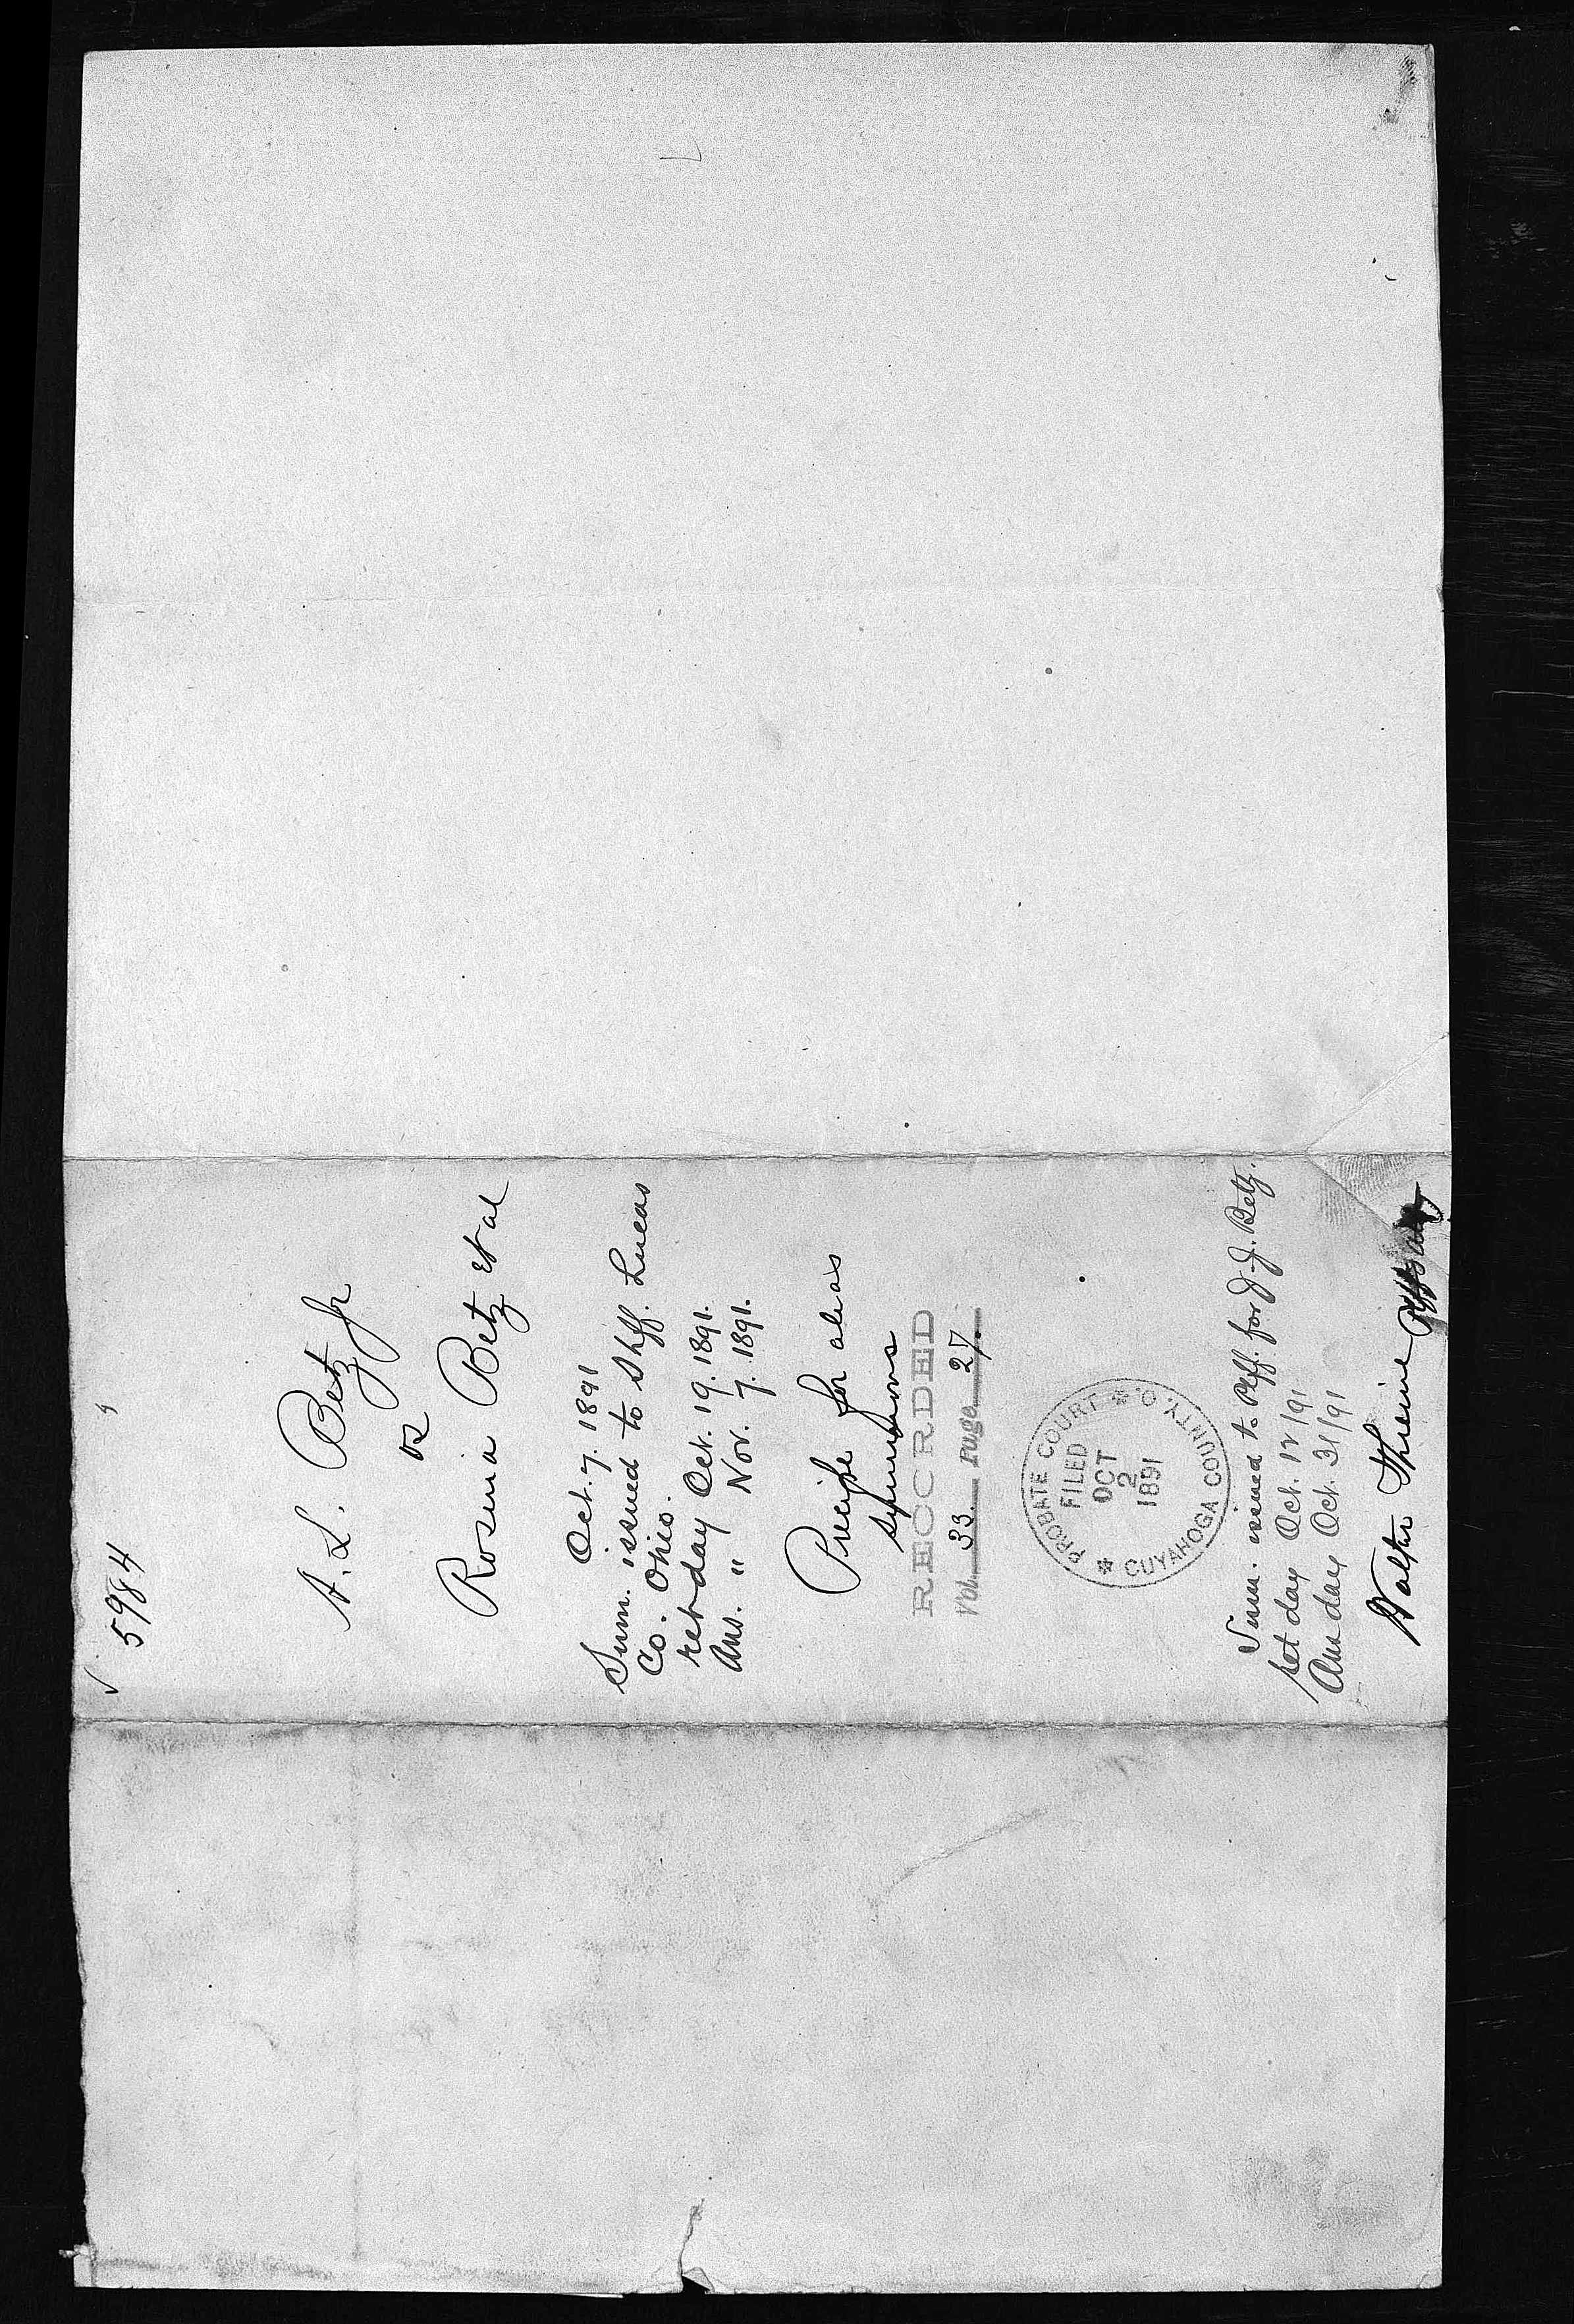 ✓ 5984
A. L. Betz Jr
vs
Rosina Betz et al
Oct. 7. 1891
Sum. issued to Shff. Lucas
Co. Ohio.
ret day Oct. 19. 1891.
Ans. " Nov. 7. 1891.
Precipe for alias
summons
RECORDED
Vol. 33. Page 27.
PROBATE COURT
FILED
OCT
2
1891
CUYAHOGA COUNTY, O.
Sum. issued to Plff. for J. J. Betz.
ret day Oct. 12/91
Ans day Oct. 31/91
Walter Thieme